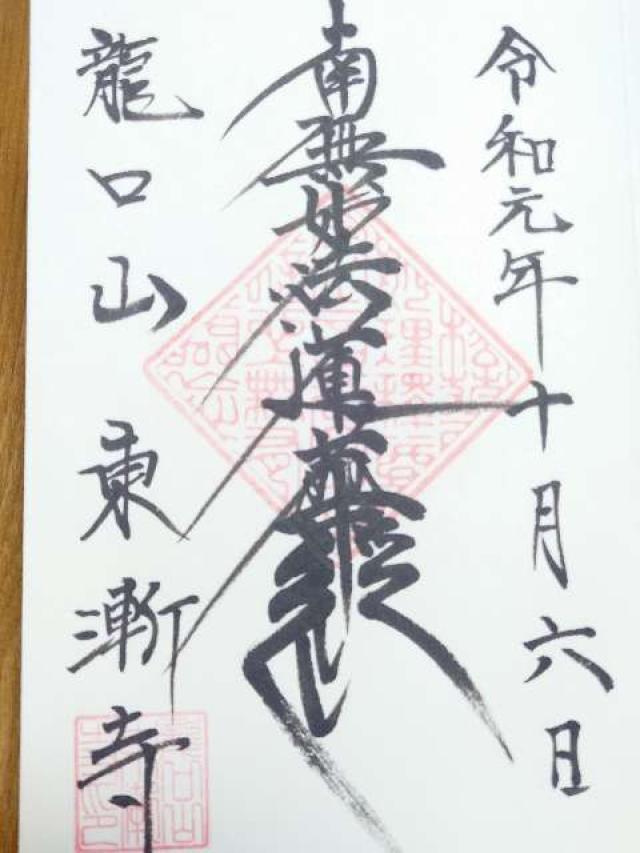 令和元年十月六日
南無妙法蓮華経
龍口山 東漸寺